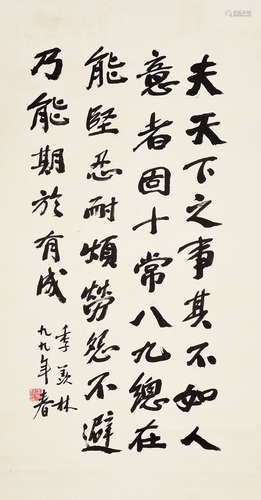 夫天下之事其不如人
意者固十常八九總在
能堅忍耐煩勞怨不避
乃能期於有成
季羨林
九九年春